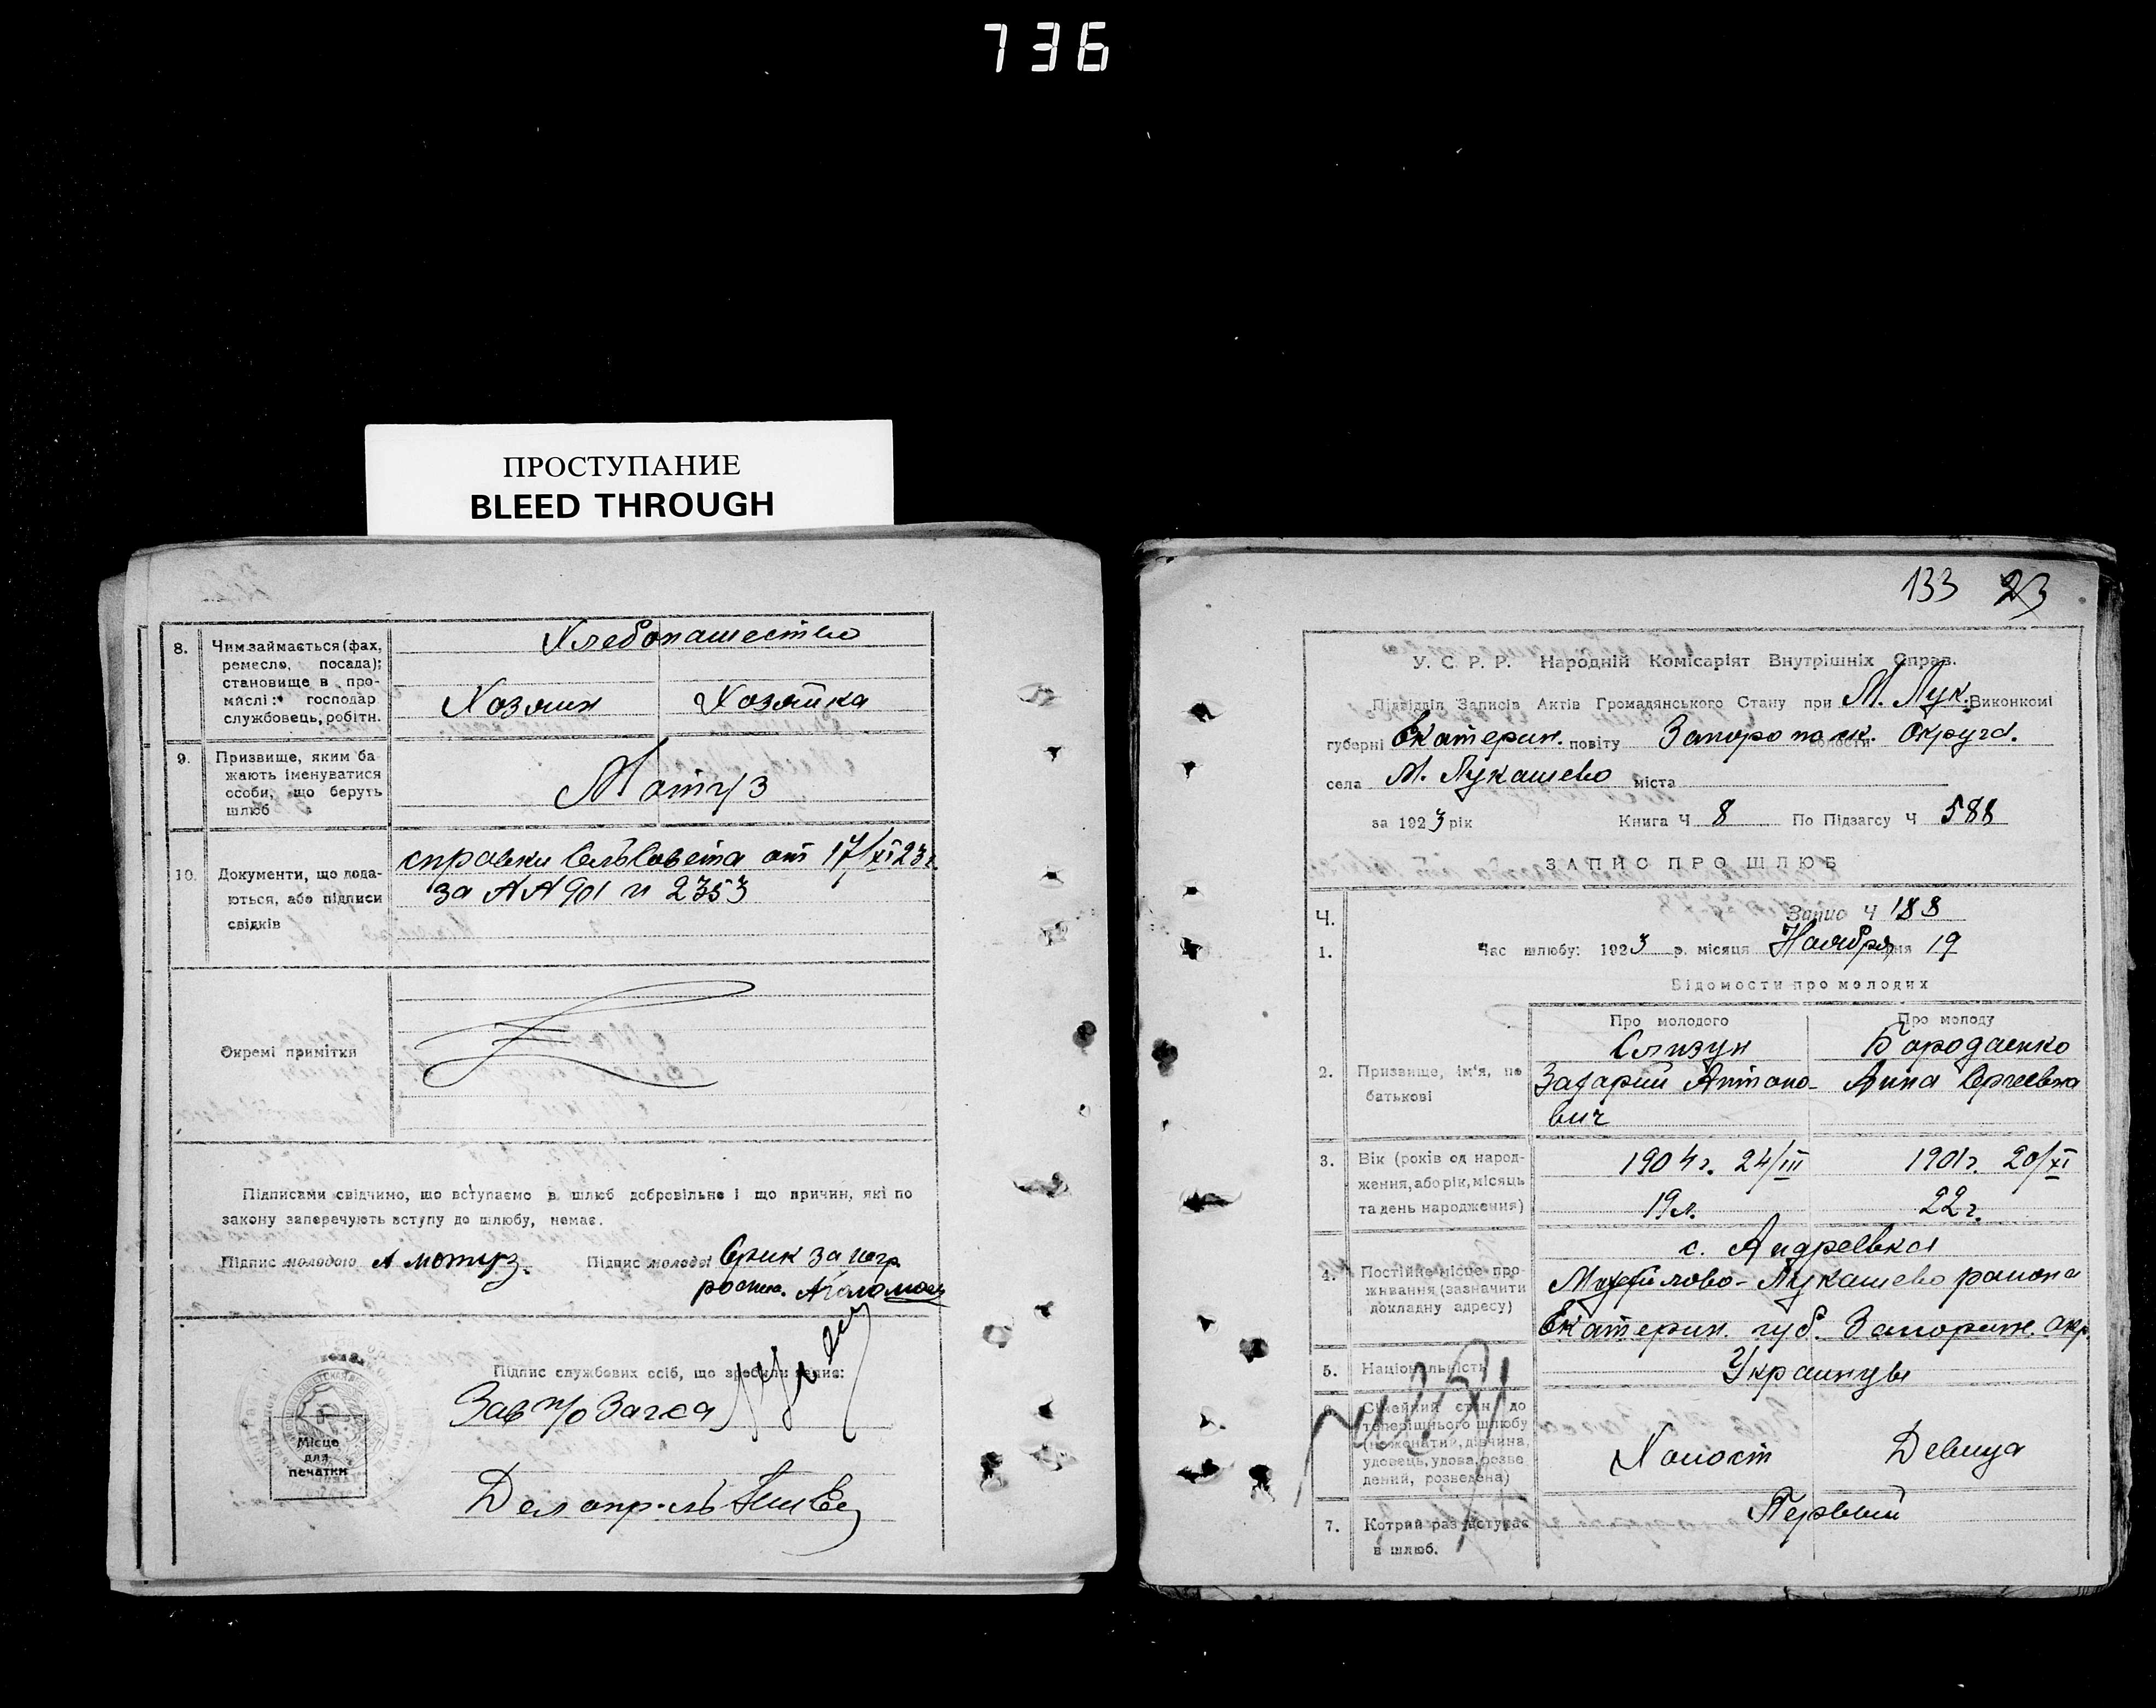 736
ПРОСТУПАНИЕ
BLEED THROUGH
8. Чим займається (фах,
ремесло, посада);
становище в про-
мислі: господар
службовець, робітн.
Хлебопашество
Хозяин Хозяйка
9. Призвище, яким ба-
жають іменуватися
особи, що беруть
шлюб
Мотуз
10. Документи, що дода-
ються, або підписи
свідків
справки СельСовета от 17/XI 23 г.
за №№ 901 и 2353
Окремі примітки
Підписами свідчимо, що вступаємо в шлюб добровільне і що причин, які по
закону заперечують вступу до шлюбу, немає.
Підпис молодого А мотуз. Підпис молодої за негр
роспис.
Підпис службових осіб, що зробили запис:
Зав п/о Загса
Місце
для
печатки
133 23
У. С. Р. Р. Народній Комісаріят Внутрішніх Справ.
Підвідділ Записів Актів Громадянського Стану при М. Лук. Виконкомі
губерні Екатерин. повіту Запорожск. волости Округа.
села М. Лукашево міста
за 1923 рік Книга Ч 8 По Підзагсу Ч 588
ЗАПИС ПРО ШЛЮБ
Ч. Запис Ч 188
1. Час шлюбу: 1923 р. місяця Ноября дня 19
Відомости про молодих
Про молодого Про молоду
2. Призвище, ім'я, по
батькові
Слизун Бородаенко
Захарий Антоно- Анна Сергеевна
вич
3. Вік (років од народ-
ження, або рік, місяць
та день народження)
1904 г. 24/III 1901 г. 20/XI
19 л. 22 г.
4. Постійне місце про-
живання (зазначити
докладну адресу)
с. Андреевка
Михайлово-Лукашево района
Екатерин. губ. Запорож. окр.
5. Національність
Украинцы
6. Сімейний стан до
теперішнього шлюбу
(нежонатий, дівчина,
удовець, удова, розве
дений, розведена)
Холост Девица
7. Котрий раз вступає
в шлюб.
Первый